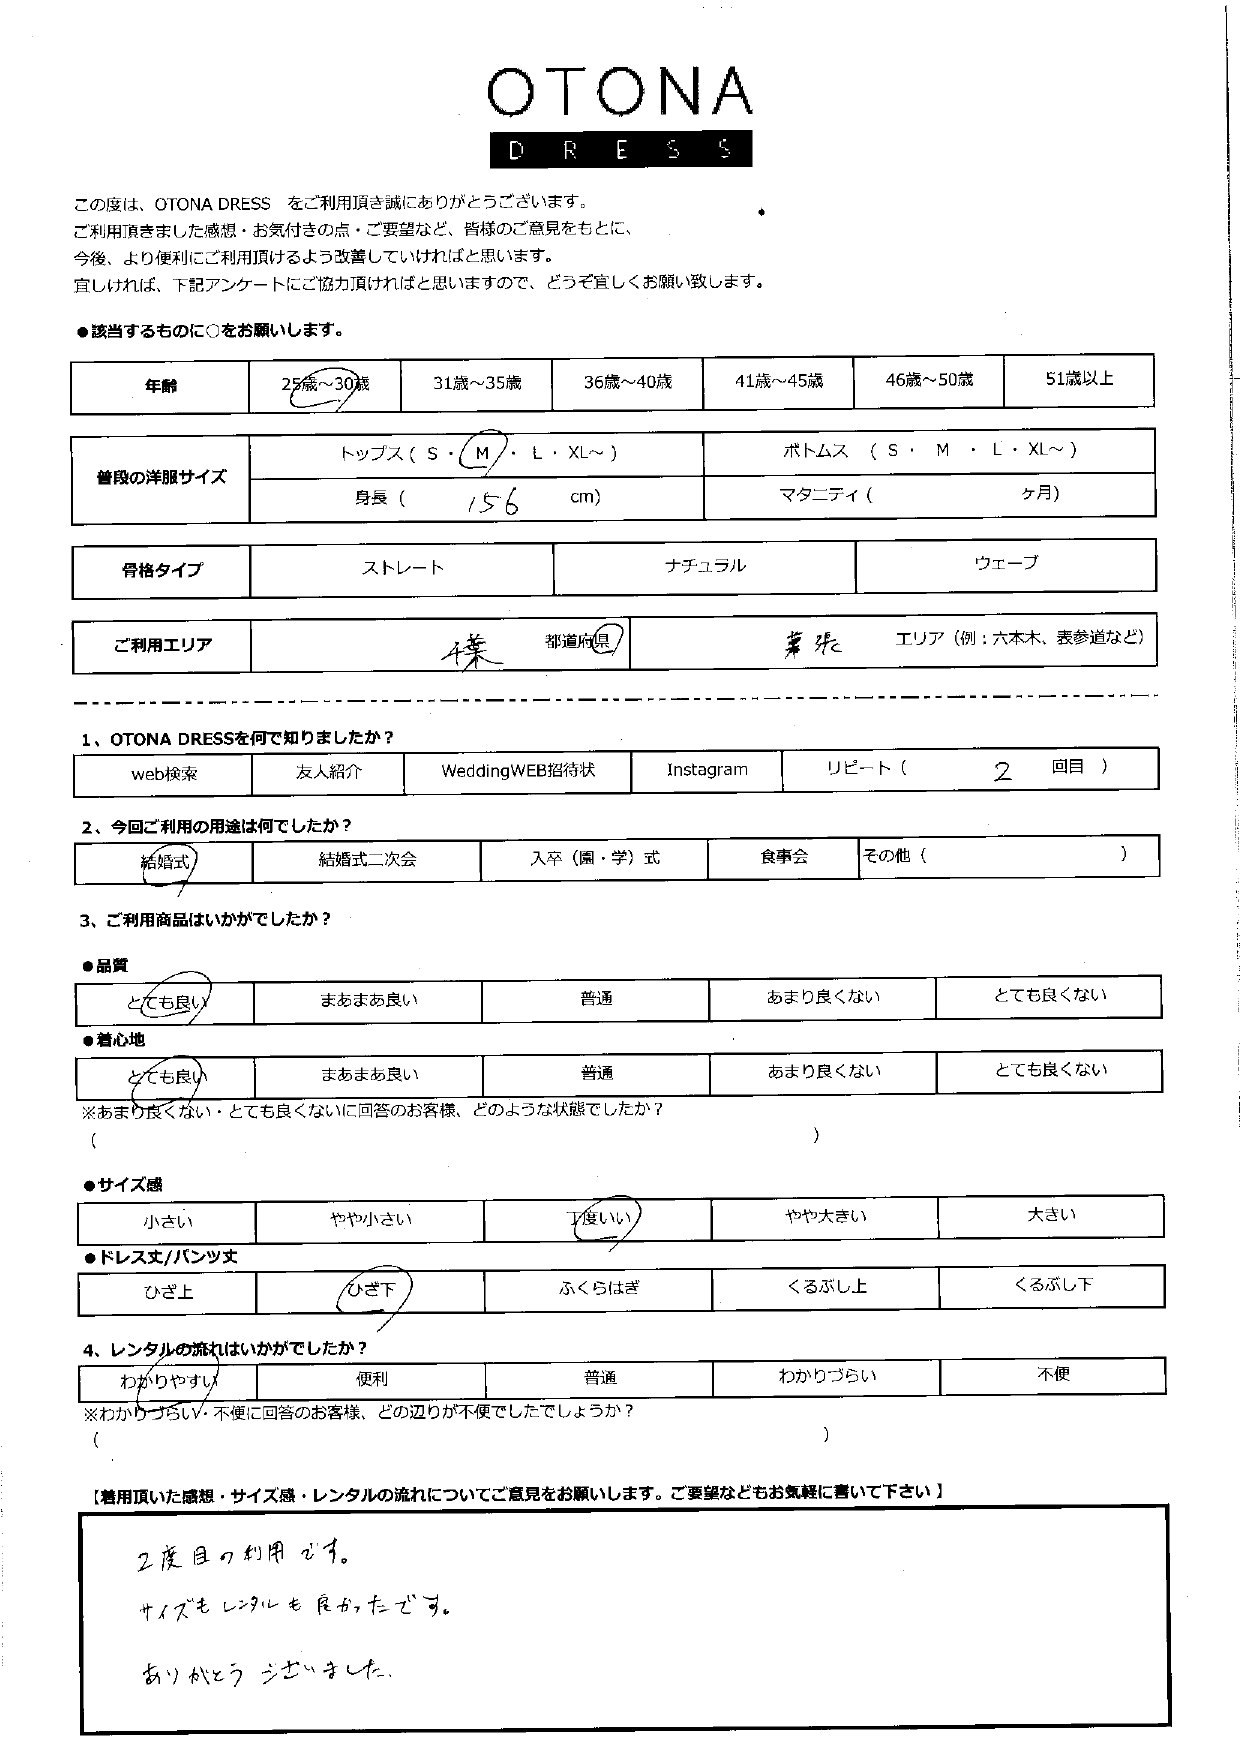 OTONA
DRESS
この度は、OTONA DRESS をご利用頂き誠にありがとうございます。
ご利用頂きました感想・お気付きの点・ご要望など、皆様のご意見をもとに、
今後、より便利にご利用頂けるよう改善していければと思います。
宜しければ、下記アンケートにご協力頂ければと思いますので、どうぞ宜しくお願い致します。
●該当するものに○をお願いします。
年齢 25歳～30歳 31歳～35歳 36歳～40歳 41歳～45歳 46歳～50歳 51歳以上
普段の洋服サイズ トップス( S ・ M ・ L ・ XL～ ) ボトムス ( S ・ M ・ L ・ XL～ )
身長 ( 156 cm) マタニティ ( ヶ月)
骨格タイプ ストレート ナチュラル ウェーブ
ご利用エリア 千葉 都道府県 幕張 エリア（例：六本木、表参道など）
1、OTONA DRESSを何で知りましたか？
web検索 友人紹介 WeddingWEB招待状 Instagram リピート ( 2 回目 )
2、今回ご利用の用途は何でしたか？
結婚式 結婚式二次会 入卒（園・学）式 食事会 その他 ( )
3、ご利用商品はいかがでしたか？
●品質
とても良い まあまあ良い 普通 あまり良くない とても良くない
●着心地
とても良い まあまあ良い 普通 あまり良くない とても良くない
※あまり良くない・とても良くないに回答のお客様、どのような状態でしたか？
( )
●サイズ感
小さい やや小さい 丁度いい やや大きい 大きい
●ドレス丈/パンツ丈
ひざ上 ひざ下 ふくらはぎ くるぶし上 くるぶし下
4、レンタルの流れはいかがでしたか？
わかりやすい 便利 普通 わかりづらい 不便
※わかりづらい・不便に回答のお客様、どの辺りが不便でしたでしょうか？
( )
【着用頂いた感想・サイズ感・レンタルの流れについてご意見をお願いします。ご要望などもお気軽に書いて下さい】
2度目の利用です。
サイズもレンタルも良かったです。
ありがとうございました.